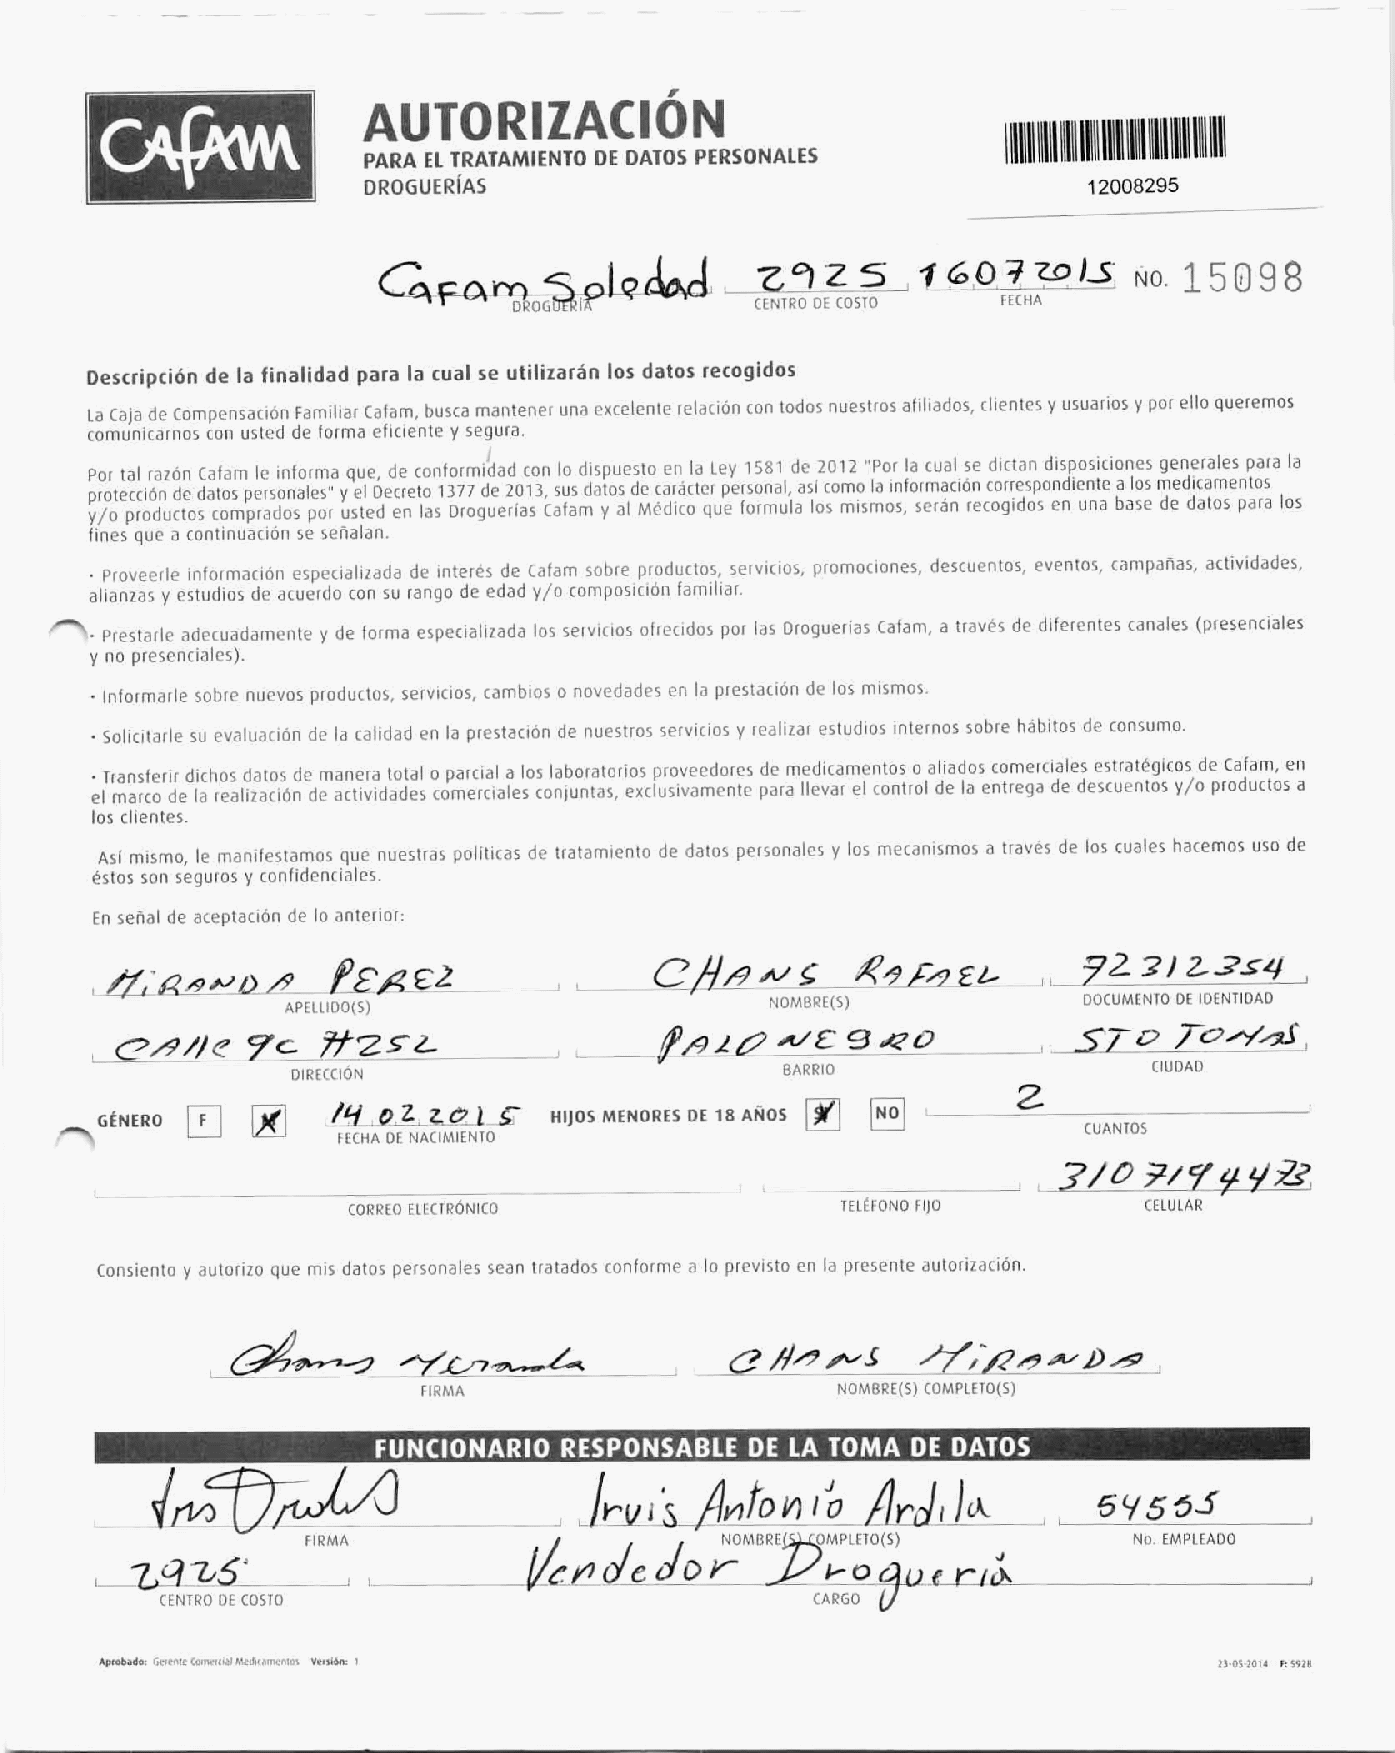 CAFAM
AUTORIZACIÓN
PARA EL TRATAMIENTO DE DATOS PERSONALES
DROGUERÍAS
12008295
Cafam Soledad 2925 16072015 NO. 15098
DROGUERÍA CENTRO DE COSTO FECHA
Descripción de la finalidad para la cual se utilizarán los datos recogidos
La Caja de Compensación Familiar Cafam, busca mantener una excelente relación con todos nuestros afiliados, clientes y usuarios y por ello queremos
comunicarnos con usted de forma eficiente y segura.
Por tal razón Cafam le informa que, de conformidad con lo dispuesto en la Ley 1581 de 2012 "Por la cual se dictan disposiciones generales para la
protección de datos personales" y el Decreto 1377 de 2013, sus datos de carácter personal, así como la información correspondiente a los medicamentos
y/o productos comprados por usted en las Droguerías Cafam y al Médico que formula los mismos, serán recogidos en una base de datos para los
fines que a continuación se señalan.
· Proveerle información especializada de interés de Cafam sobre productos, servicios, promociones, descuentos, eventos, campañas, actividades,
alianzas y estudios de acuerdo con su rango de edad y/o composición familiar.
· Prestarle adecuadamente y de forma especializada los servicios ofrecidos por las Droguerías Cafam, a través de diferentes canales (presenciales
y no presenciales).
· Informarle sobre nuevos productos, servicios, cambios o novedades en la prestación de los mismos.
· Solicitarle su evaluación de la calidad en la prestación de nuestros servicios y realizar estudios internos sobre hábitos de consumo.
· Transferir dichos datos de manera total o parcial a los laboratorios proveedores de medicamentos o aliados comerciales estratégicos de Cafam, en
el marco de la realización de actividades comerciales conjuntas, exclusivamente para llevar el control de la entrega de descuentos y/o productos a
los clientes.
Así mismo, le manifestamos que nuestras políticas de tratamiento de datos personales y los mecanismos a través de los cuales hacemos uso de
éstos son seguros y confidenciales.
En señal de aceptación de lo anterior:
MIRANDA PEREZ CHANS RAFAEL 72312354
APELLIDO(S) NOMBRE(S) DOCUMENTO DE IDENTIDAD
CAllE 9C #252 PALO NEGRO STO TOMAS
DIRECCIÓN BARRIO CIUDAD
GÉNERO F 14 02 2015 HIJOS MENORES DE 18 AÑOS NO 2
FECHA DE NACIMIENTO CUANTOS
3107194473
CORREO ELECTRÓNICO TELÉFONO FIJO CELULAR
Consiento y autorizo que mis datos personales sean tratados conforme a lo previsto en la presente autorización.
Chans Miranda CHANS MIRANDA
FIRMA NOMBRE(S) COMPLETO(S)
FUNCIONARIO RESPONSABLE DE LA TOMA DE DATOS
Irvis Antonio Ardila 54555
FIRMA NOMBRE(S) COMPLETO(S) No. EMPLEADO
2925 Vendedor Droguería
CENTRO DE COSTO CARGO
Aprobado: Gerente Comercial Medicamentos Versión: 1 23-05-2014 F: 5928